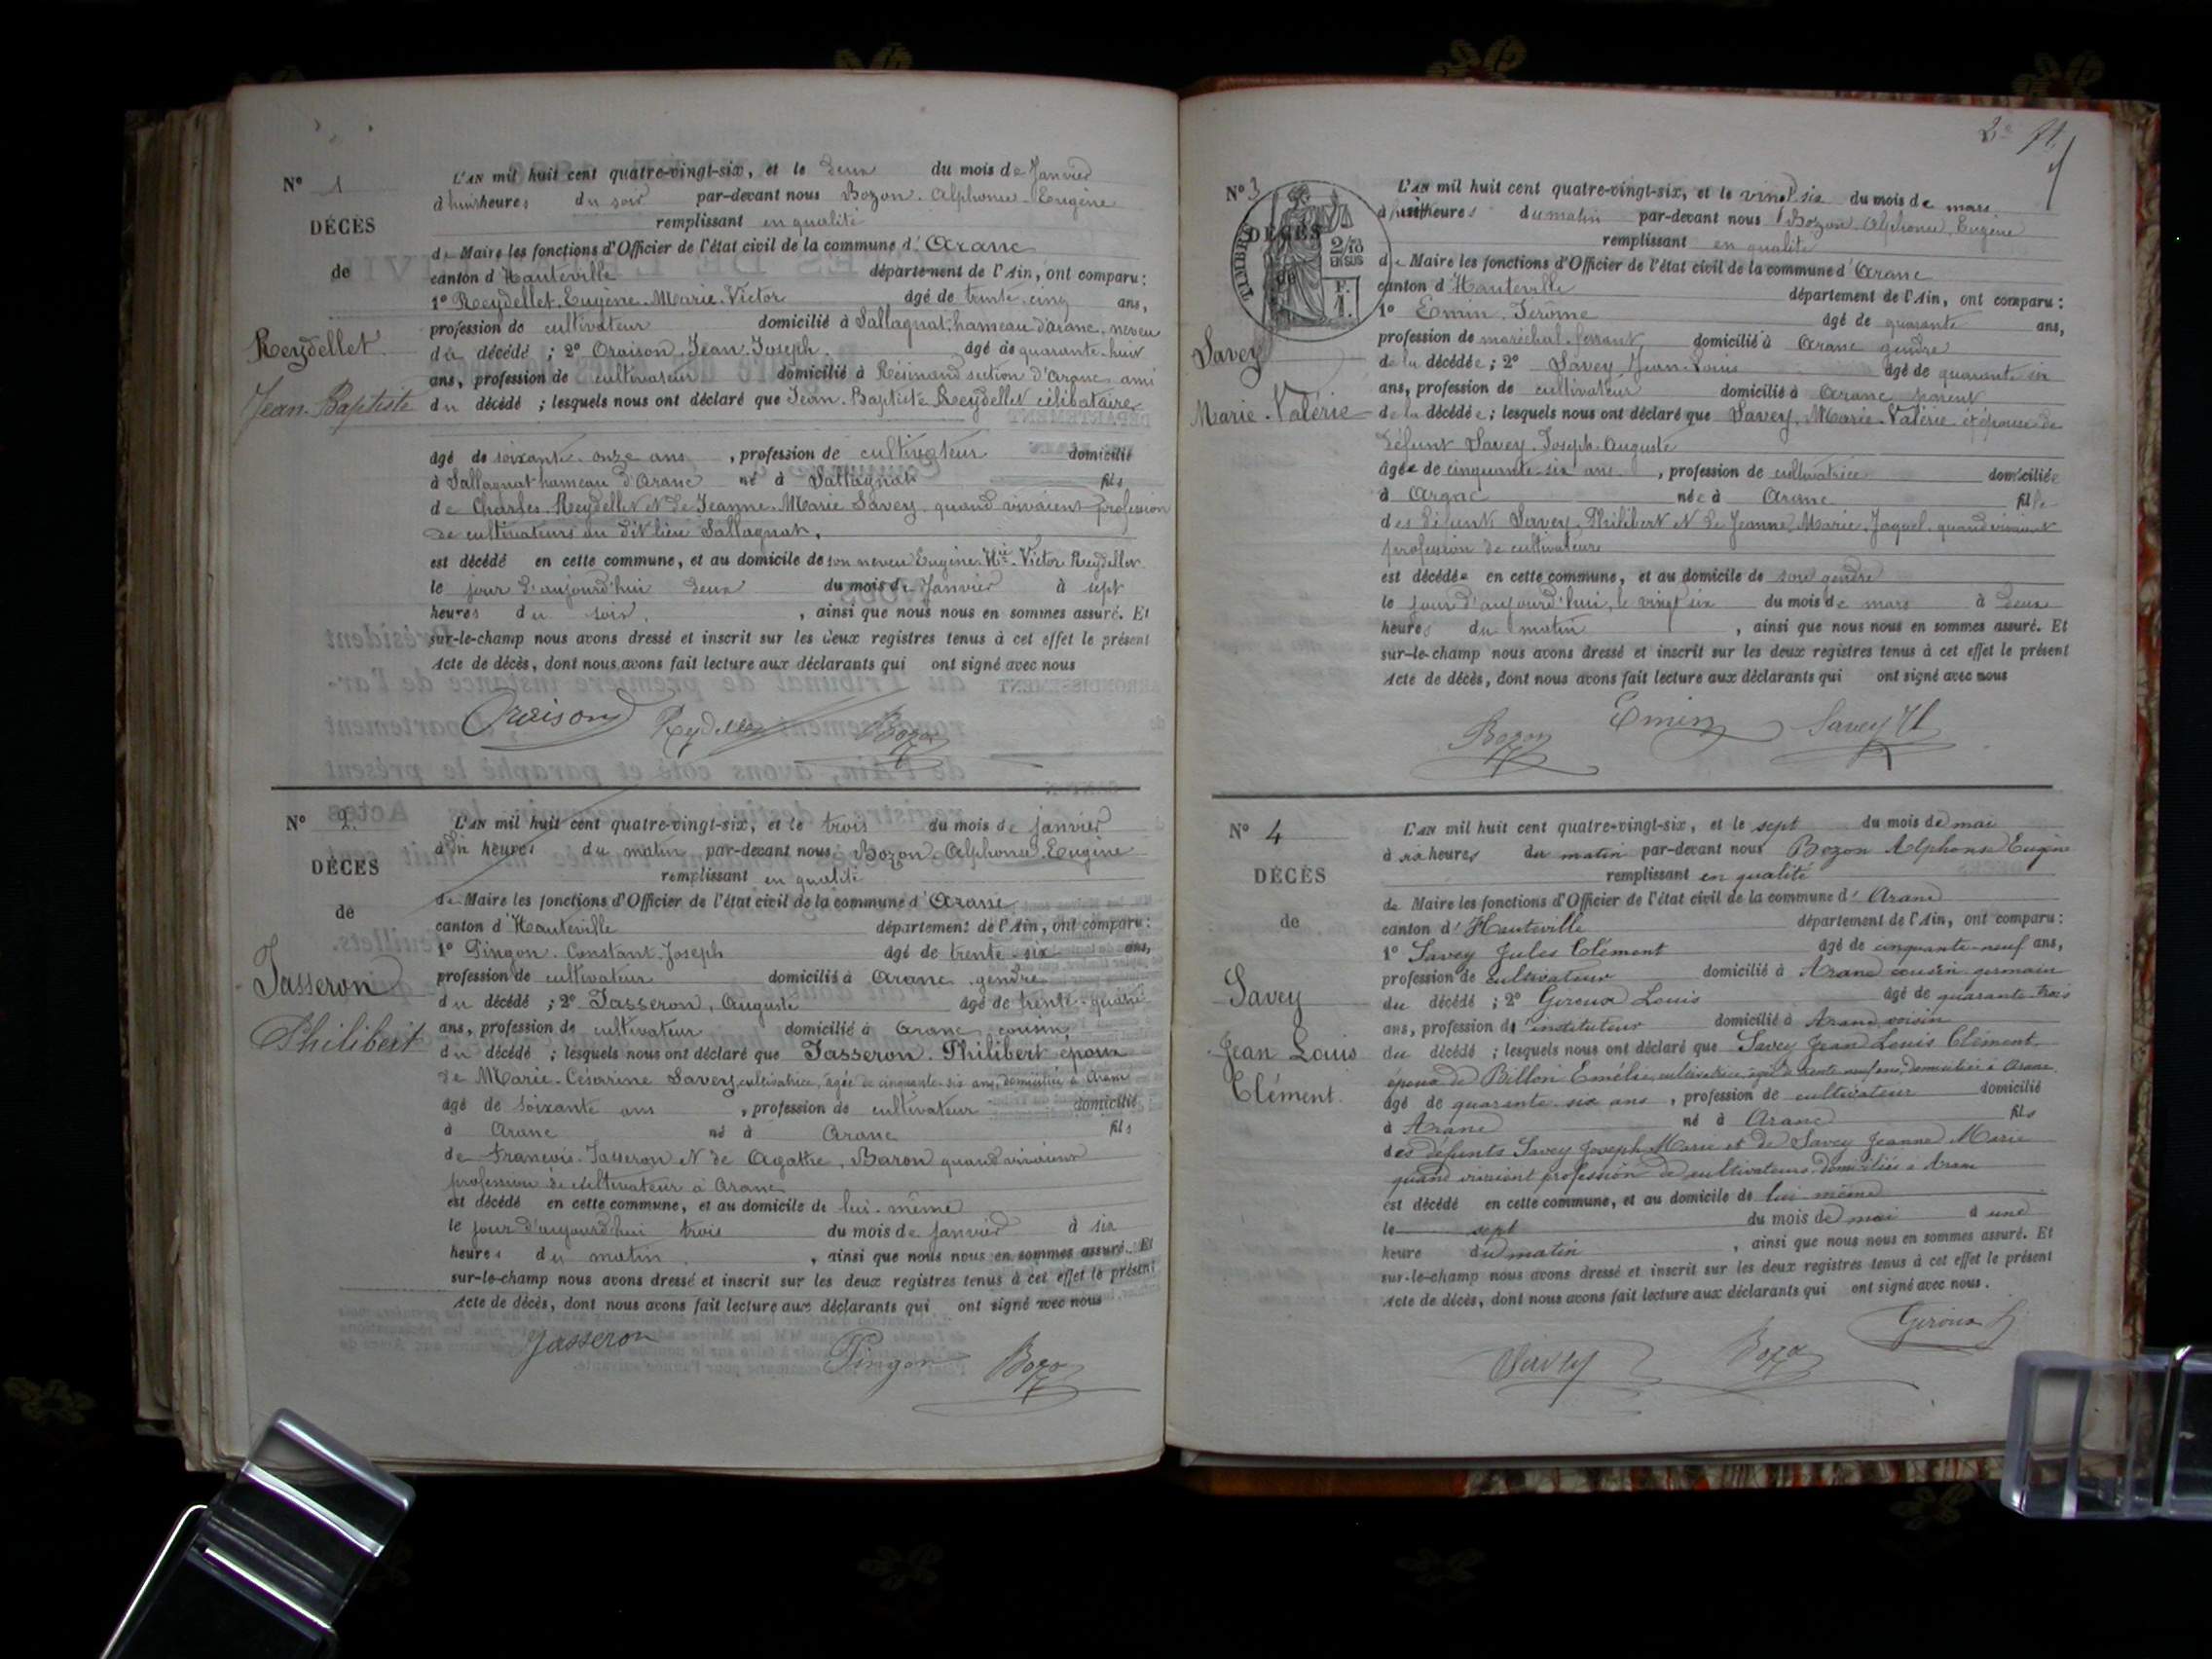 N° 1
DÉCÈS
de
Reydellet
Jean-Baptiste
L'AN mil huit cent quatre-vingt-six, et le deux du mois de Janvier
à huit heures du soir par-devant nous Bozon Alphonse Eugène
remplissant en qualité
de Maire les fonctions d'Officier de l'état civil de la commune d'Aranc
canton d'Hauteville département de l'Ain, ont comparu :
1° Reydellet Eugène Marie Victor âgé de trente cinq ans,
profession de cultivateur domicilié à Sallagnat hameau d'aranc, neveu
du décédé ; 2° Oraison Jean Joseph âgé de quarante-huit
ans, profession de cultivateur domicilié à Résinand section d'aranc ami
du décédé ; lesquels nous ont déclaré que Jean-Baptiste Reydellet célibataire
âgé de soixante onze ans , profession de cultivateur domicilié
à Sallagnat hameau d'Aranc né à Sallagnat fils
de Charles Reydellet et de Jeanne-Marie Savey quand vivaient profession
de cultivateurs au dit lieu Sallagnat,
est décédé en cette commune, et au domicile de son neveu Eugène Mie Victor Reydellet
le jour d'aujourd'hui deux du mois de Janvier à sept
heures du soir , ainsi que nous nous en sommes assuré. Et
sur-le-champ nous avons dressé et inscrit sur les deux registres tenus à cet effet le présent
Acte de décès, dont nous avons fait lecture aux déclarants qui ont signé avec nous
Oraison Reydellet Bozon
N° 2
DÉCÈS
de
Jasseron
Philibert
L'AN mil huit cent quatre-vingt-six, et le trois du mois de janvier
à dix heures du matin par-devant nous Bozon Alphonse Eugène
remplissant en qualité
de Maire les fonctions d'Officier de l'état civil de la commune d'Aranc
canton d'Hauteville département de l'Ain, ont comparu :
1° Pingon Constant Joseph âgé de trente-six ans,
profession de cultivateur domicilié à Aranc, gendre
du décédé ; 2° Jasseron, Auguste âgé de trente-quatre
ans, profession de cultivateur domicilié à Aranc, cousin
du décédé ; lesquels nous ont déclaré que Jasseron Philibert époux
de Marie-Césarine Savey, cultivatrice, agée de cinquante-six ans, domiciliée à Aranc
âgé de soixante ans , profession de cultivateur domicilié
à Aranc né à Aranc fils
de François Jasseron et de Agathe, Baron quand vivaient
profession de cultivateur à Aranc
est décédé en cette commune, et au domicile de lui-même
le jour d'aujourd'hui trois du mois de janvier à six
heures du matin , ainsi que nous nous en sommes assuré. Et
sur-le-champ nous avons dressé et inscrit sur les deux registres tenus à cet effet le présent
Acte de décès, dont nous avons fait lecture aux déclarants qui ont signé avec nous
Jasseron Pingon Bozon
2e
N° 3
DÉCÈS
de
TIMBRE
2/10
EN SUS
F.
1.
Savey
Marie-Valérie
L'AN mil huit cent quatre-vingt-six, et le vingt six du mois de mars
à huit heures du matin par-devant nous Bozon Alphonse Eugène
remplissant en qualité
de Maire les fonctions d'Officier de l'état civil de la commune d'Aranc
canton d'Hauteville département de l'Ain, ont comparu :
1° Emin Jérôme âgé de quarante ans,
profession de maréchal-ferrant domicilié à Aranc gendre
de la décédée ; 2° Savey Jean Louis âgé de quarante six
ans, profession de cultivateur domicilié à Aranc parent
de la décédée ; lesquels nous ont déclaré que Savey Marie-Valérie épouse de
défunt Savey Joseph Auguste
âgée de cinquante-six ans , profession de cultivatrice domiciliée
à Aranc née à Aranc fille
des défunts Savey Philibert et de Jeanne Marie Jaquet quand vivaient
profession de cultivateurs
est décédée en cette commune, et au domicile de son gendre
le jour d'aujourd'hui, le vingt six du mois de mars à deux
heures du matin , ainsi que nous nous en sommes assuré. Et
sur-le-champ nous avons dressé et inscrit sur les deux registres tenus à cet effet le présent
Acte de décès, dont nous avons fait lecture aux déclarants qui ont signé avec nous
Bozon Emin Savey
N° 4
DÉCÈS
de
Savey
Jean Louis
Clément.
L'AN mil huit cent quatre-vingt-six, et le sept du mois de mai
à six heures du matin par-devant nous Bozon Alphonse Eugène
remplissant en qualité
de Maire les fonctions d'Officier de l'état civil de la commune d'Aranc
canton d'Hauteville département de l'Ain, ont comparu :
1° Savey Jules Clément âgé de cinquante-neuf ans,
profession de cultivateur domicilié à Aranc cousin germain
du décédé ; 2° Giroux Louis âgé de quarante-trois
ans, profession d'instituteur domicilié à Aranc voisin
du décédé ; lesquels nous ont déclaré que Savey Jean Louis Clément
époux de Billon Emélie, cultivatrice, agée de trente neuf ans, domiciliée à Aranc
âgé de quarante-six ans , profession de cultivateur domicilié
à Aranc né à Aranc fils
des défunts Savey Joseph Marie et de Savey Jeanne Marie
quand vivaient profession de cultivateurs domiciliés à Aranc
est décédé en cette commune, et au domicile de lui même
le sept du mois de mai à une
heure du matin , ainsi que nous nous en sommes assuré. Et
sur-le-champ nous avons dressé et inscrit sur les deux registres tenus à cet effet le présent
Acte de décès, dont nous avons fait lecture aux déclarants qui ont signé avec nous.
Giroux
Savey Bozon